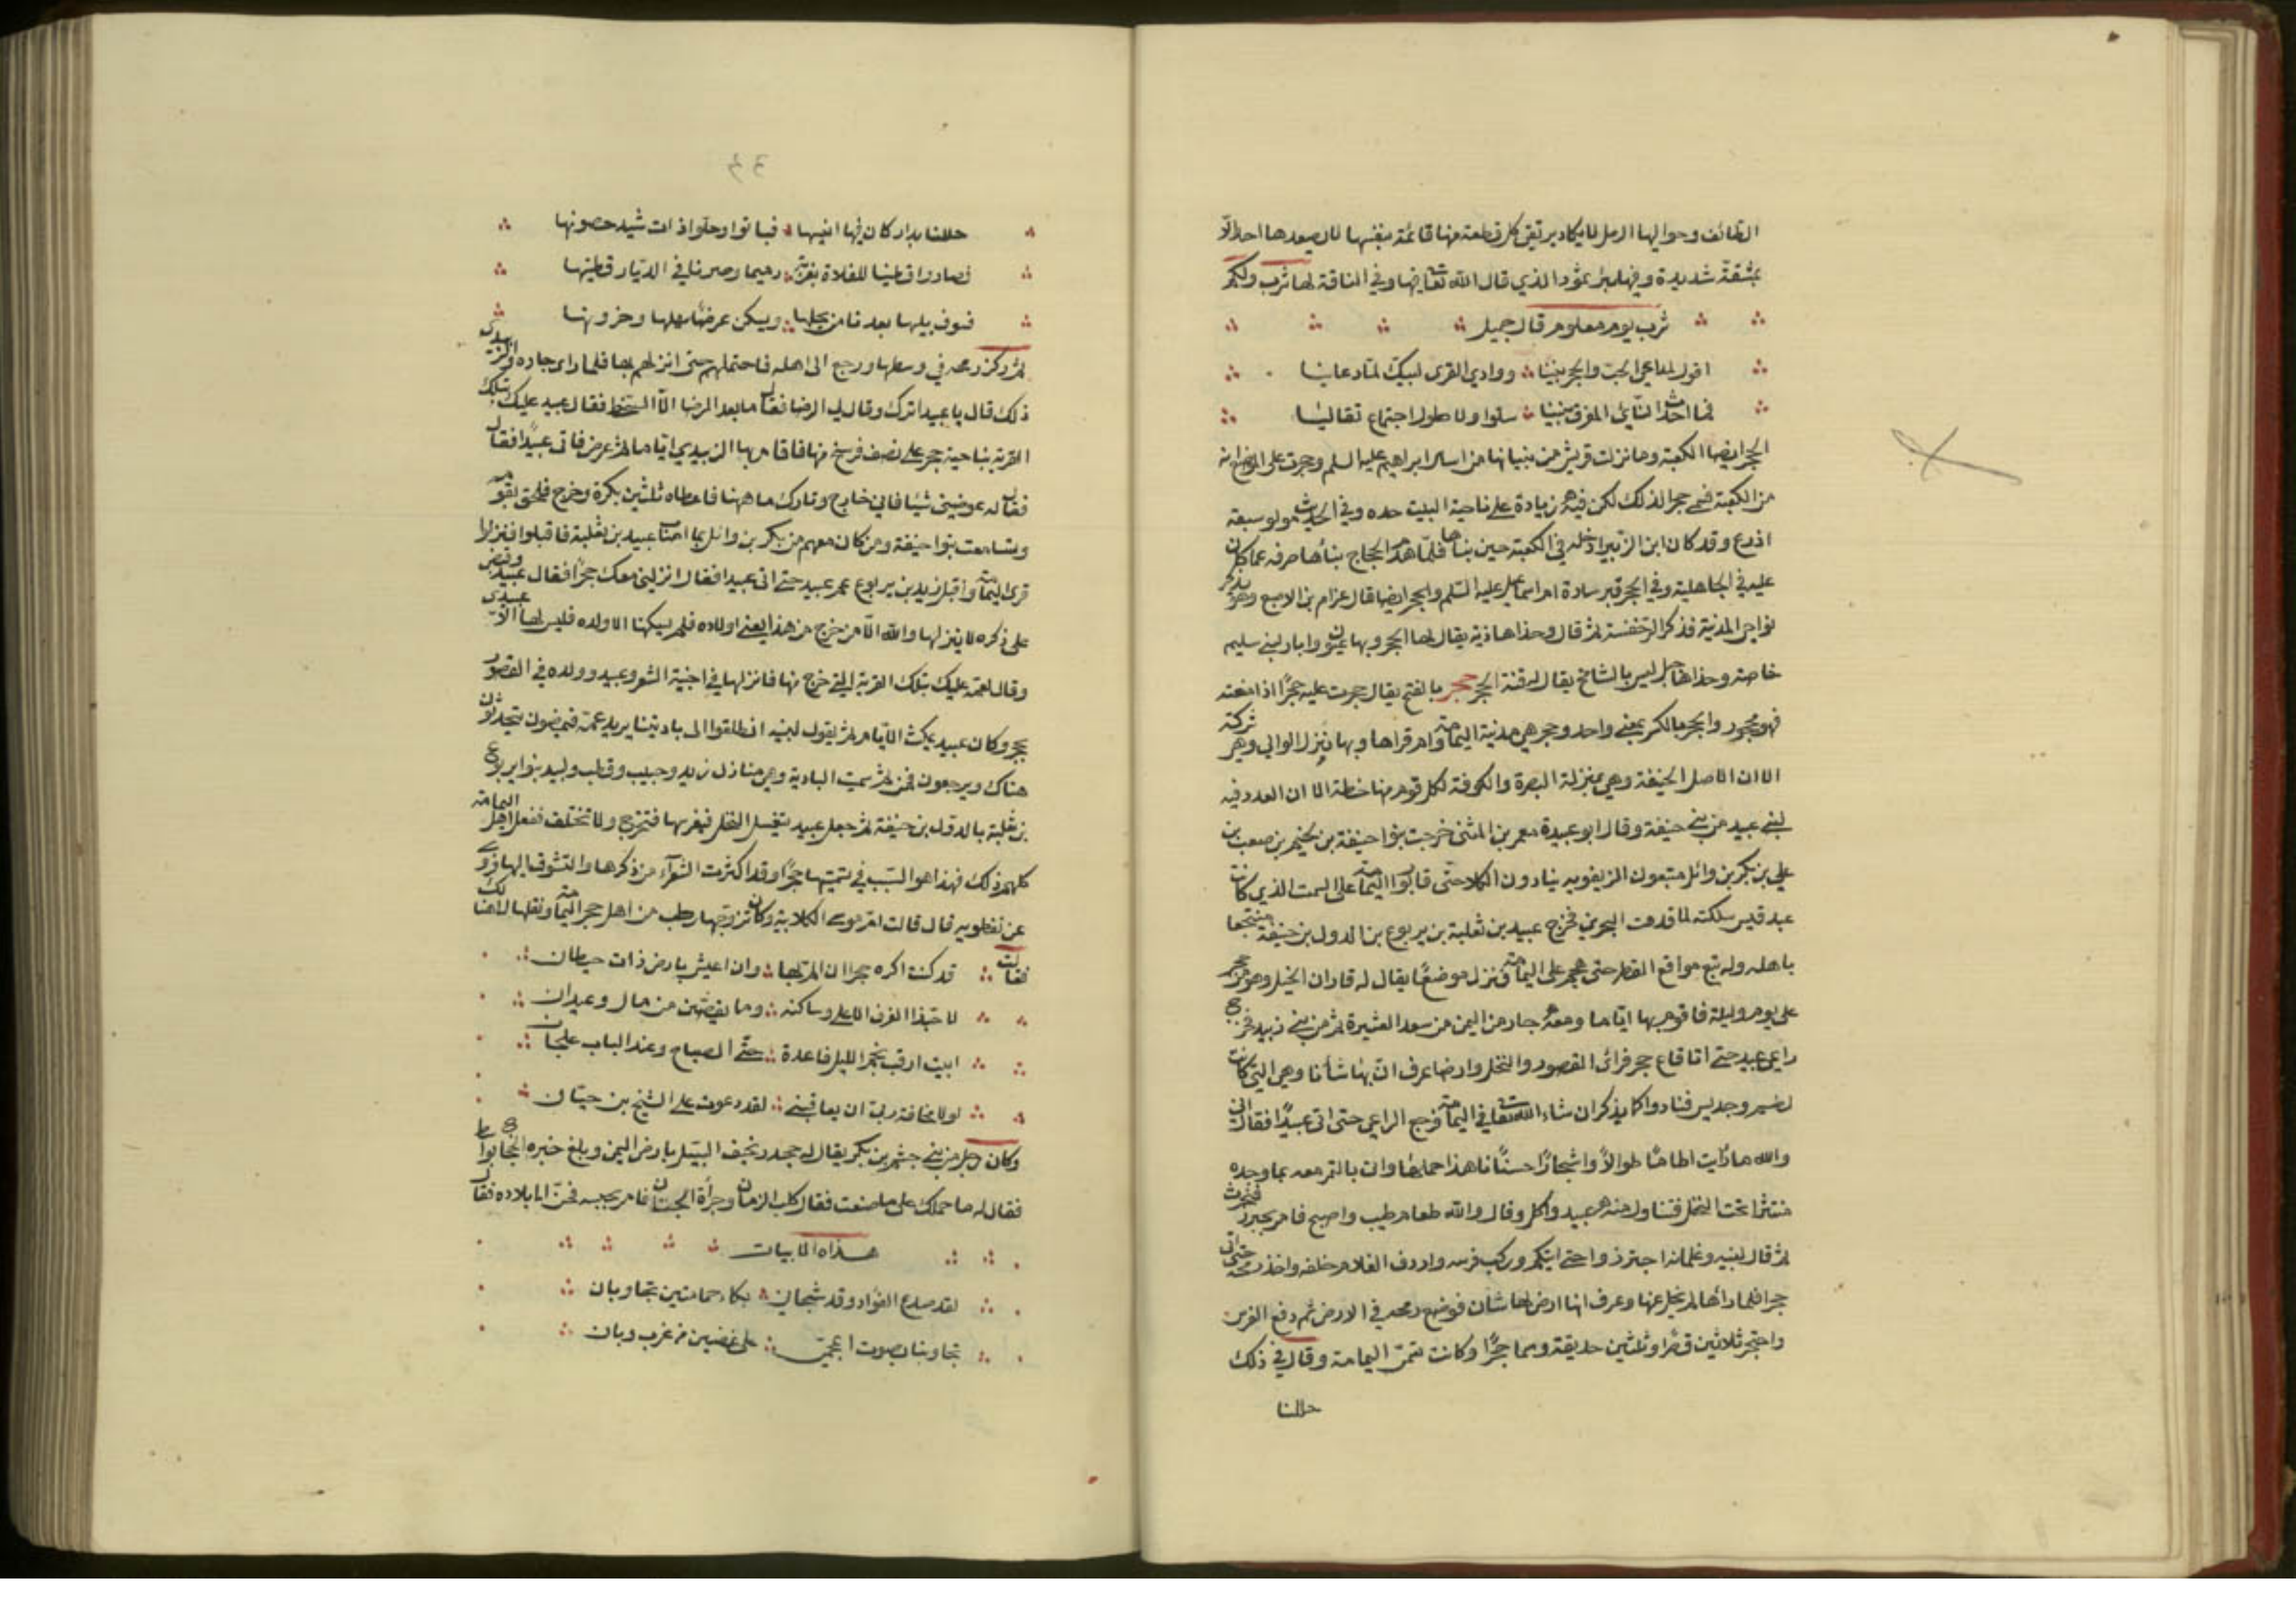 الطائف وحواليها الرمل لا يكاد يرتقي كل قطعة منها قائمة بنفسها لا يصعدها احد الا
بمشقة شديدة وفيها بئر ثمود الذي قال الله تعا فيها وفي الناقة لها شرب ولكم
شرب يوم معلوم قال جميل
اقول لداعي الحب والحجر بيننا ووادي القرى لبيك لما دعانيا
فما احدث النأي المفرق بيننا سلوا ولا طول اجتماع تقاليا
الحجر ايضا الكعبة وما نزلت قريش من بنيانها من اساس ابراهيم عليه السلم وحجرت على المواضع انه
من الكعبة فسمي حجرا لذلك لكن فيه زيادة على ناحية البيت حده وفي الحديث هو لو سبعة
اذرع وقد كان ابن الزبير ادخله في الكعبة حين بناها فلما هدم الحجاج بناها صرفه عما كان
عليه في الجاهلية وفي الحجر قبر سادة ام اسماعيل عليه السلم والحجر ايضا قال عرام بن الاصبع وهو يذكر
نواحي المدينة فذكر الرحضية ثم قال وحذاها قرية يقال لها الحجر وبها عيون وابار لبني سليم
خاصة وحذاها جبل ليس بالشامخ يقال له قنة الحجر حجر بالفتح يقال حجرت عليه حجرا اذا منعته
فهو محجور والحجر بالكسر بمعنى واحد وحجر هي مدينة اليمامة وام قراها وبها ينزل الوالي وهي شركة
الا ان الاصل لحنيفة وهي بمنزلة البصرة والكوفة لكل قوم منها خطة الا ان العدد فيه
لبني عبيد من بني حنيفة وقال ابو عبيدة معمر بن المثنى خرجت بنوا حنيفة بن لجيم بن صعب بن
علي بن بكر بن وائل يتبعون الريف ويرتادون الكلا حتى قاربوا اليمامة على السمت الذي كانت
عبد قيس سلكته لما قدمت البحرين فخرج عبيد بن ثعلبة بن يربوع بن الدول بن حنيفة منتجعا
باهله وله يتبع مواقع القطر حتى هجم على اليمامة فنزل موضعا يقال له قارات الخيل وهو من حجر
على يوم وليلة فاقام بها اياما ومعه جار من اليمن من سعد العشيرة ثم من بني زبيد فخرج
راعي عبيد حتى اتا قاع حجر فراى القصور والنخل وارضا عرف ان بها شأنا وهي التي كانت
لطسم وجديس فبادوا كما يذكر ان شاء الله تعا في اليمامة فرجع الراعي حتى اتى عبيدا فقال اني
والله ما رايت اطاما طوالا واشجارا حسنا هذا حملها واتى بالتمر معه بما وجده
منتثرا تحت النخل فتناول منه عبيد واكل وقال والله طعام طيب واصبح فامر بجزور فنحرت
ثم قال لبنيه وغلمانه اجتزروا حتى اتيكم وركب فرسه واردف الغلام خلفه واخذ رمحه حتى اتى
حجرا فلما رأها لم يحل عنها وعرف انها ارض لها شأن فوضع رمحه في الارض ثم دفع الفرس
واحتجر ثلاثين قصرا وثلثين حديقة وسماها حجرا وكانت تسمى اليمامة وقال في ذلك
حللنا
حللنا بدار كان فيها انيسها فبادوا وخلوا ذات شيد حصونها
فصاروا قطينا للفلاة بغربة رميما وصرنا في الديار قطينها
فسوف يليها بعدنا من يحلها ويسكن عرضا سهلها وحزونها
ثم ركز رمحه في وسطها ورجع الى اهله فاحتملهم حتى انزلهم بها فلما راى جاره الزبيدي
ذلك قال يا عبيد الشرك وقال بل الرضا فقال ما بعد الرضا الا السخط فقال عبيد عليك بتلك
القرية بناحية حجر على نصف فرسخ منها فاقام بها الزبيدي اياما ثم غرض فاتى عبيدا فقال
فقال له عوضني شيئا فاني خارج وتارك ما ههنا فاعطاه ثلثين بكرة وخرج فلحق بقومه
وتسامعت بنوا حنيفة ومن كان معهم من بكر بن وائل بما اصاب عبيد بن ثعلبة فاقبلوا فنزلوا
قرى اليمامة واقبل زيد بن يربوع عم عبيد حتى اتى عبيدا فقال انزلني معك حجرا فقال عبيد وقبض
على ذكره لا ينزلها والله الا من خرج من هذا يعني اولاده فلم يسكنها الا ولده فليس لها الا عبيدي
وقال لعمه عليك بتلك القرية التي خرج منها فانزلها في اخبية الشعر وعبيد وولده في القصور
بحجر وكان عبيد يمكث الايام ثم يقول لبنيه انطلقوا الى باديتنا يريد عمه فيمضون يتحدثون
هناك ويرجعون فمن ثم سميت البادية وهي منازل زيد وحبيب وقطب ولبيد بنوا يربوع
بن ثعلبة بن الدول بن حنيفة ثم جعل عبيد يغسل النخل فيغرسها فتخرج ولا تخلف ففعل اهل اليمامة
كلهم ذلك فهذا هو السبب في تسميتها حجرا وقد اكثرت الشعرآء من ذكرها والتشوق اليها فروي
عن نفطويه قال قالت ام موسى الكلابية وكان تزوجها رجل من اهل حجر اليمامة ونقلها الى هنالك
فقالت قد كنت اكره حجرا ان الم بها وان اعيش بارض ذات حيطان
لا حبذا الغرف الاعلى وساكنه وما تضمن من مال وعيدان
ابيت ارقب نجم الليل قاعدة حتى الصباح وعند الباب علجان
لولا مخافة ربي ان يعاقبني لقد دعوت على الشيخ بن حيان
وكان رجل من بني جشم بن بكر يقال له جحدر يخيف السبيل بارض اليمن وبلغ خبره الحجاج
فقال له ما حملك على ما صنعت فقال كلب الزمان وجرأة الجنان فامر بحبسه فحن الى بلاده فقال
هذه الابيات
لقد صدع الفؤاد وقد شجاني بكاء حمامتين تجاوبان
تجاوبتا بصوت اعجمي على غصنين من غرب وبان